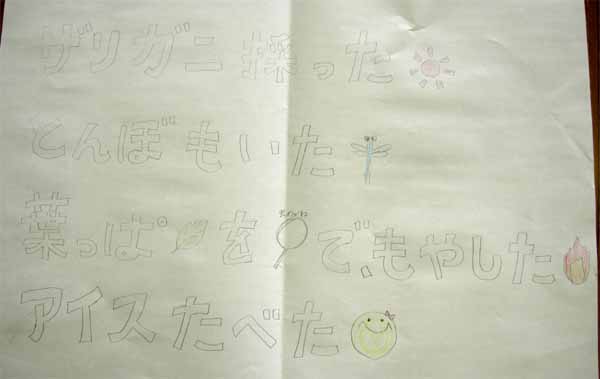 ザリガニ採った
とんぼもいた
葉っぱをで、もやした
アイスたべた